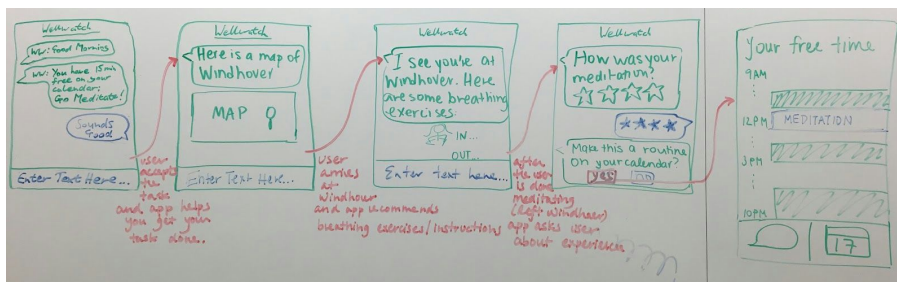 Wellwatch
WW: Good Morning
WW: You have 15 min
free on your
calendar.
Go Meditate!
Sounds
Good
Enter Text Here...
user
accepts
the
task
and app helps
you get your
task done..
Wellwatch
Here is a map of
Windhover
MAP
Enter Text Here...
user
arrives
at
Windhover
and app recommends
breathing exercises/instructions
Wellwatch
I see you're at
Windhover. Here
are some breathing
exercises.
IN...
OUT...
Enter text here...
after
the user
is done
meditating
(left Windhover)
app asks user
about experience
Wellwatch
How was your
meditation?
Make this a routine
on your calendar?
yes no
Your free time
9AM
12PM MEDITATION
3PM
10PM
17